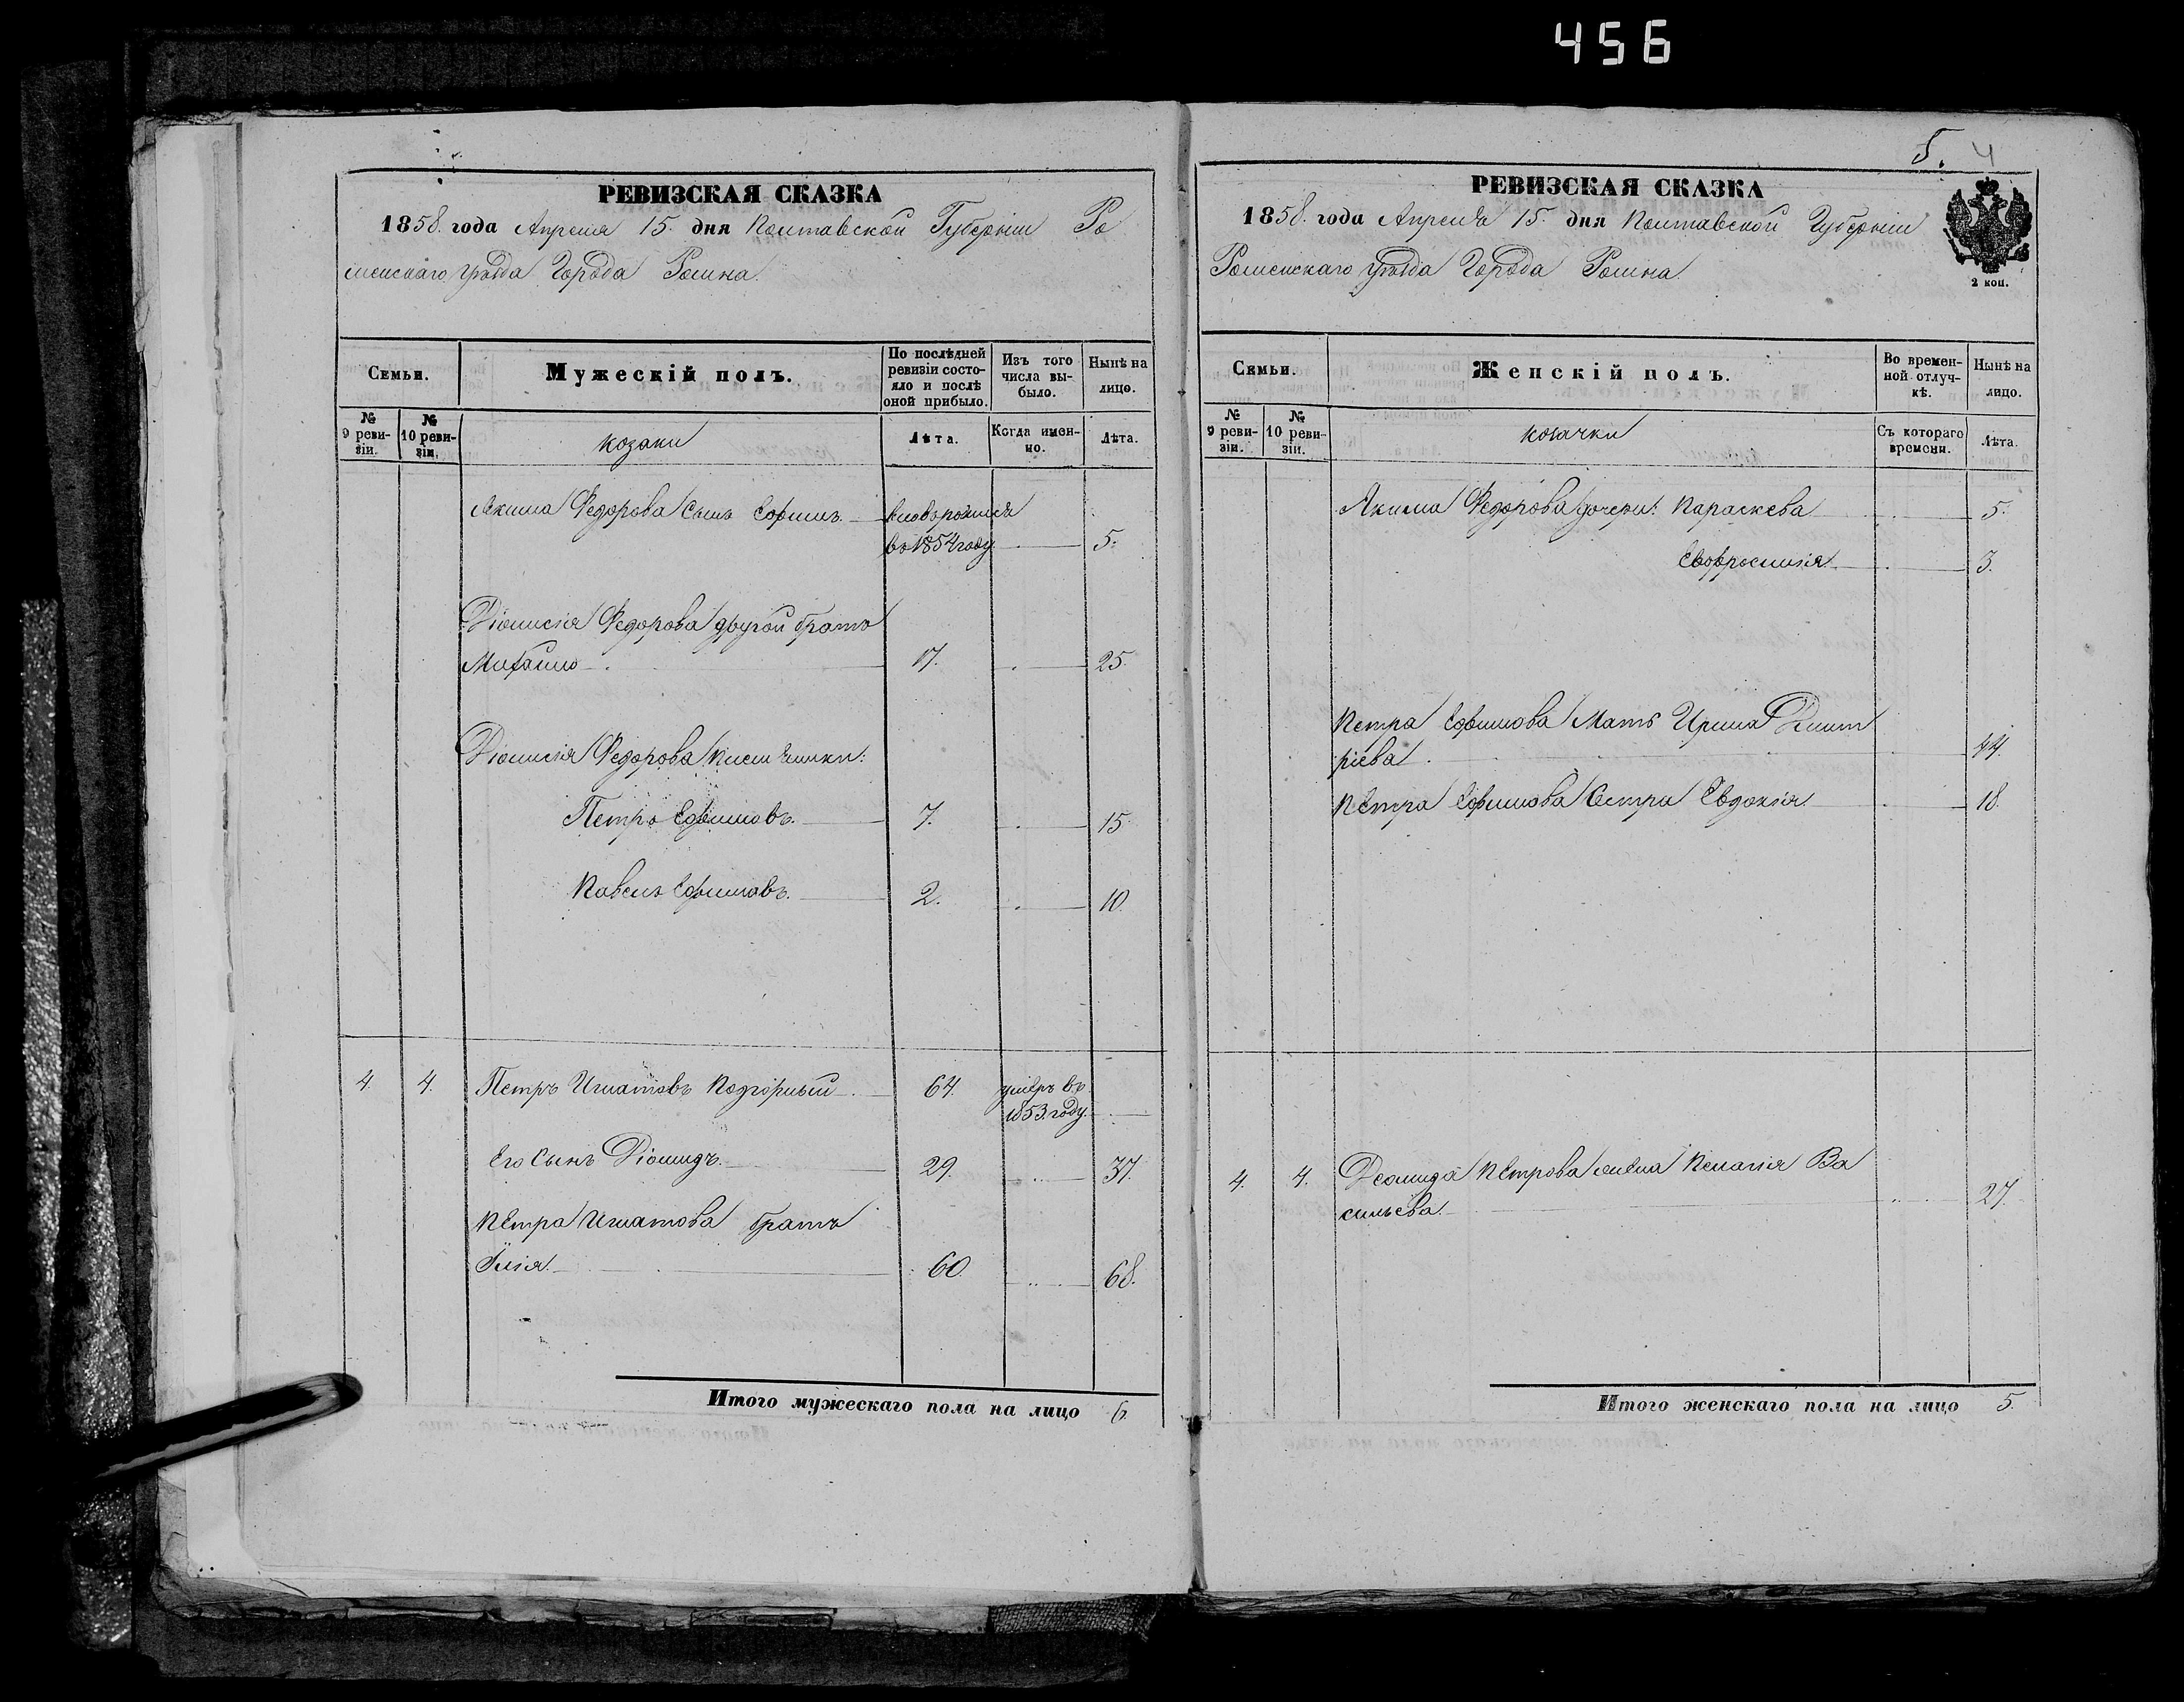 456
РЕВИЗСКАЯ СКАЗКА
1858. года Апреля 15. дня Полтавской Губерніи Ро
менскаго уѣзда Города Ромна.
Семьи.
Мужескій полъ.
По послѣдней ревизіи состояло и послѣ оной прибыло.
Изъ того числа выбыло.
Нынѣ на лицо.
№ 9 ревизіи.
№ 10 ревизіи.
козаки
Лѣта.
Когда именно.
Лѣта.
Якима Федорова сынъ Ефимъ
вновьрожденъ
в 1854 году
5.
Діонисія Федорова другой братъ
Михайло
17.
25.
Діонисія Федорова племянники:
Петро Ефимовъ.
7.
15
Павелъ Ефимовъ.
2.
10.
4
4.
Петръ Игнатовъ Подгорный
64.
умеръ въ
1853. году.
Его Сынъ Діомидъ.
29.
37.
Петра Игнатова братъ
Илія.
60.
68.
Итого мужескаго пола на лицо 6.
5. 4
РЕВИЗСКАЯ СКАЗКА
1858. года Апреля 15. дня Полтавской Губерніи
Роменскаго уѣзда Города Ромна.
2 коп.
Семьи.
Женскій полъ.
Во временной отлучкѣ.
Нынѣ на лицо.
№ 9 ревизіи.
№ 10 ревизіи.
козачки
Съ котораго времени.
Лѣта.
Якима Федорова дочери: Параскева
5.
Евфросинія
3.
Петра Ефимова Мать Ирина Дмит
ріева
44.
Петра Ефимова Сестра Евдокія
18.
4.
4.
Деомида Петрова жена Пелагія Ва
сильева.
27.
Итого женскаго пола на лицо 5.